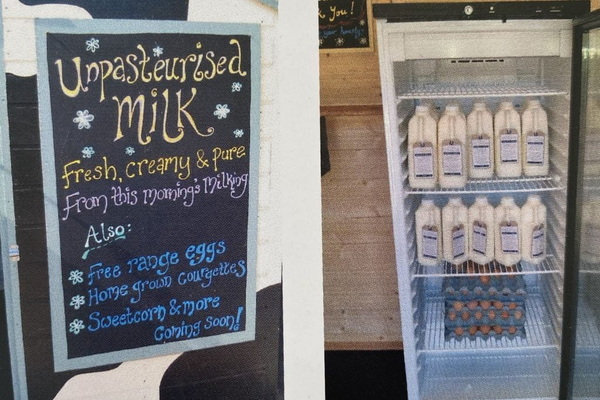 Unpasteurised
Milk
Fresh, creamy & pure
From this morning's Milking
Also:
Free range eggs
Home grown courgettes
Sweetcorn & more
Coming soon!
You!